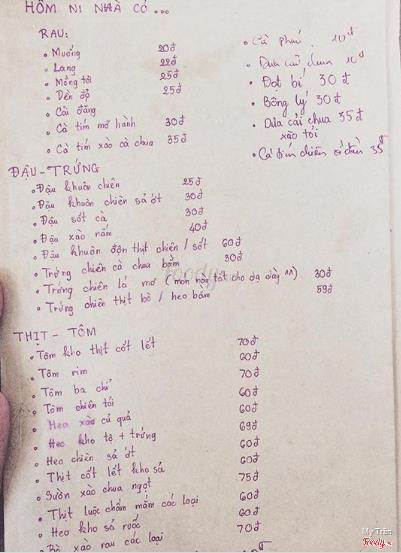 HÔM NI NHÀ CÓ...
RAU:
• Muống 20đ
• Lang 22đ
• Mồng tơi 25đ
• Dền đỏ 25đ
• Cải đắng
• Cà tím mỡ hành 30đ
• Cà tím xào cà chua 35đ
• Cà pháo 10đ
• Dưa cải chua 10đ
• Đọt bí 30đ
• Bông lý 30đ
• Dưa cải chua 35đ
xào tỏi
• Cà tím chiên 35đ
ĐẬU - TRỨNG
• Đậu khuôn chiên 25đ
• Đậu khuôn chiên sả ớt 30đ
• Đậu sốt cà 30đ
• Đậu xào nấm 40đ
• Đậu khuôn độn thịt chiên / sốt 60đ
• Trứng chiên cà chua bằm 30đ
• Trứng chiên lá mơ (món này tốt cho dạ dày ^^) 30đ
• Trứng chiên thịt bò / heo bằm 59đ
THỊT - TÔM
• Tôm kho thịt cốt lết 70đ
• Tôm rim 60đ
• Tôm ba chỉ 70đ
• Tôm chiên tỏi 60đ
• Heo xào củ quả 60đ
• Heo kho tộ + trứng 69đ
• Heo chiên sả ớt 60đ
• Thịt cốt lết kho sả 60đ
• Sườn xào chua ngọt 75đ
• Thịt luộc chấm mắm các loại 60đ
• Heo kho sả ruốc 60đ
• Bò xào rau các loại 70đ
Foody
My Trần
Foody